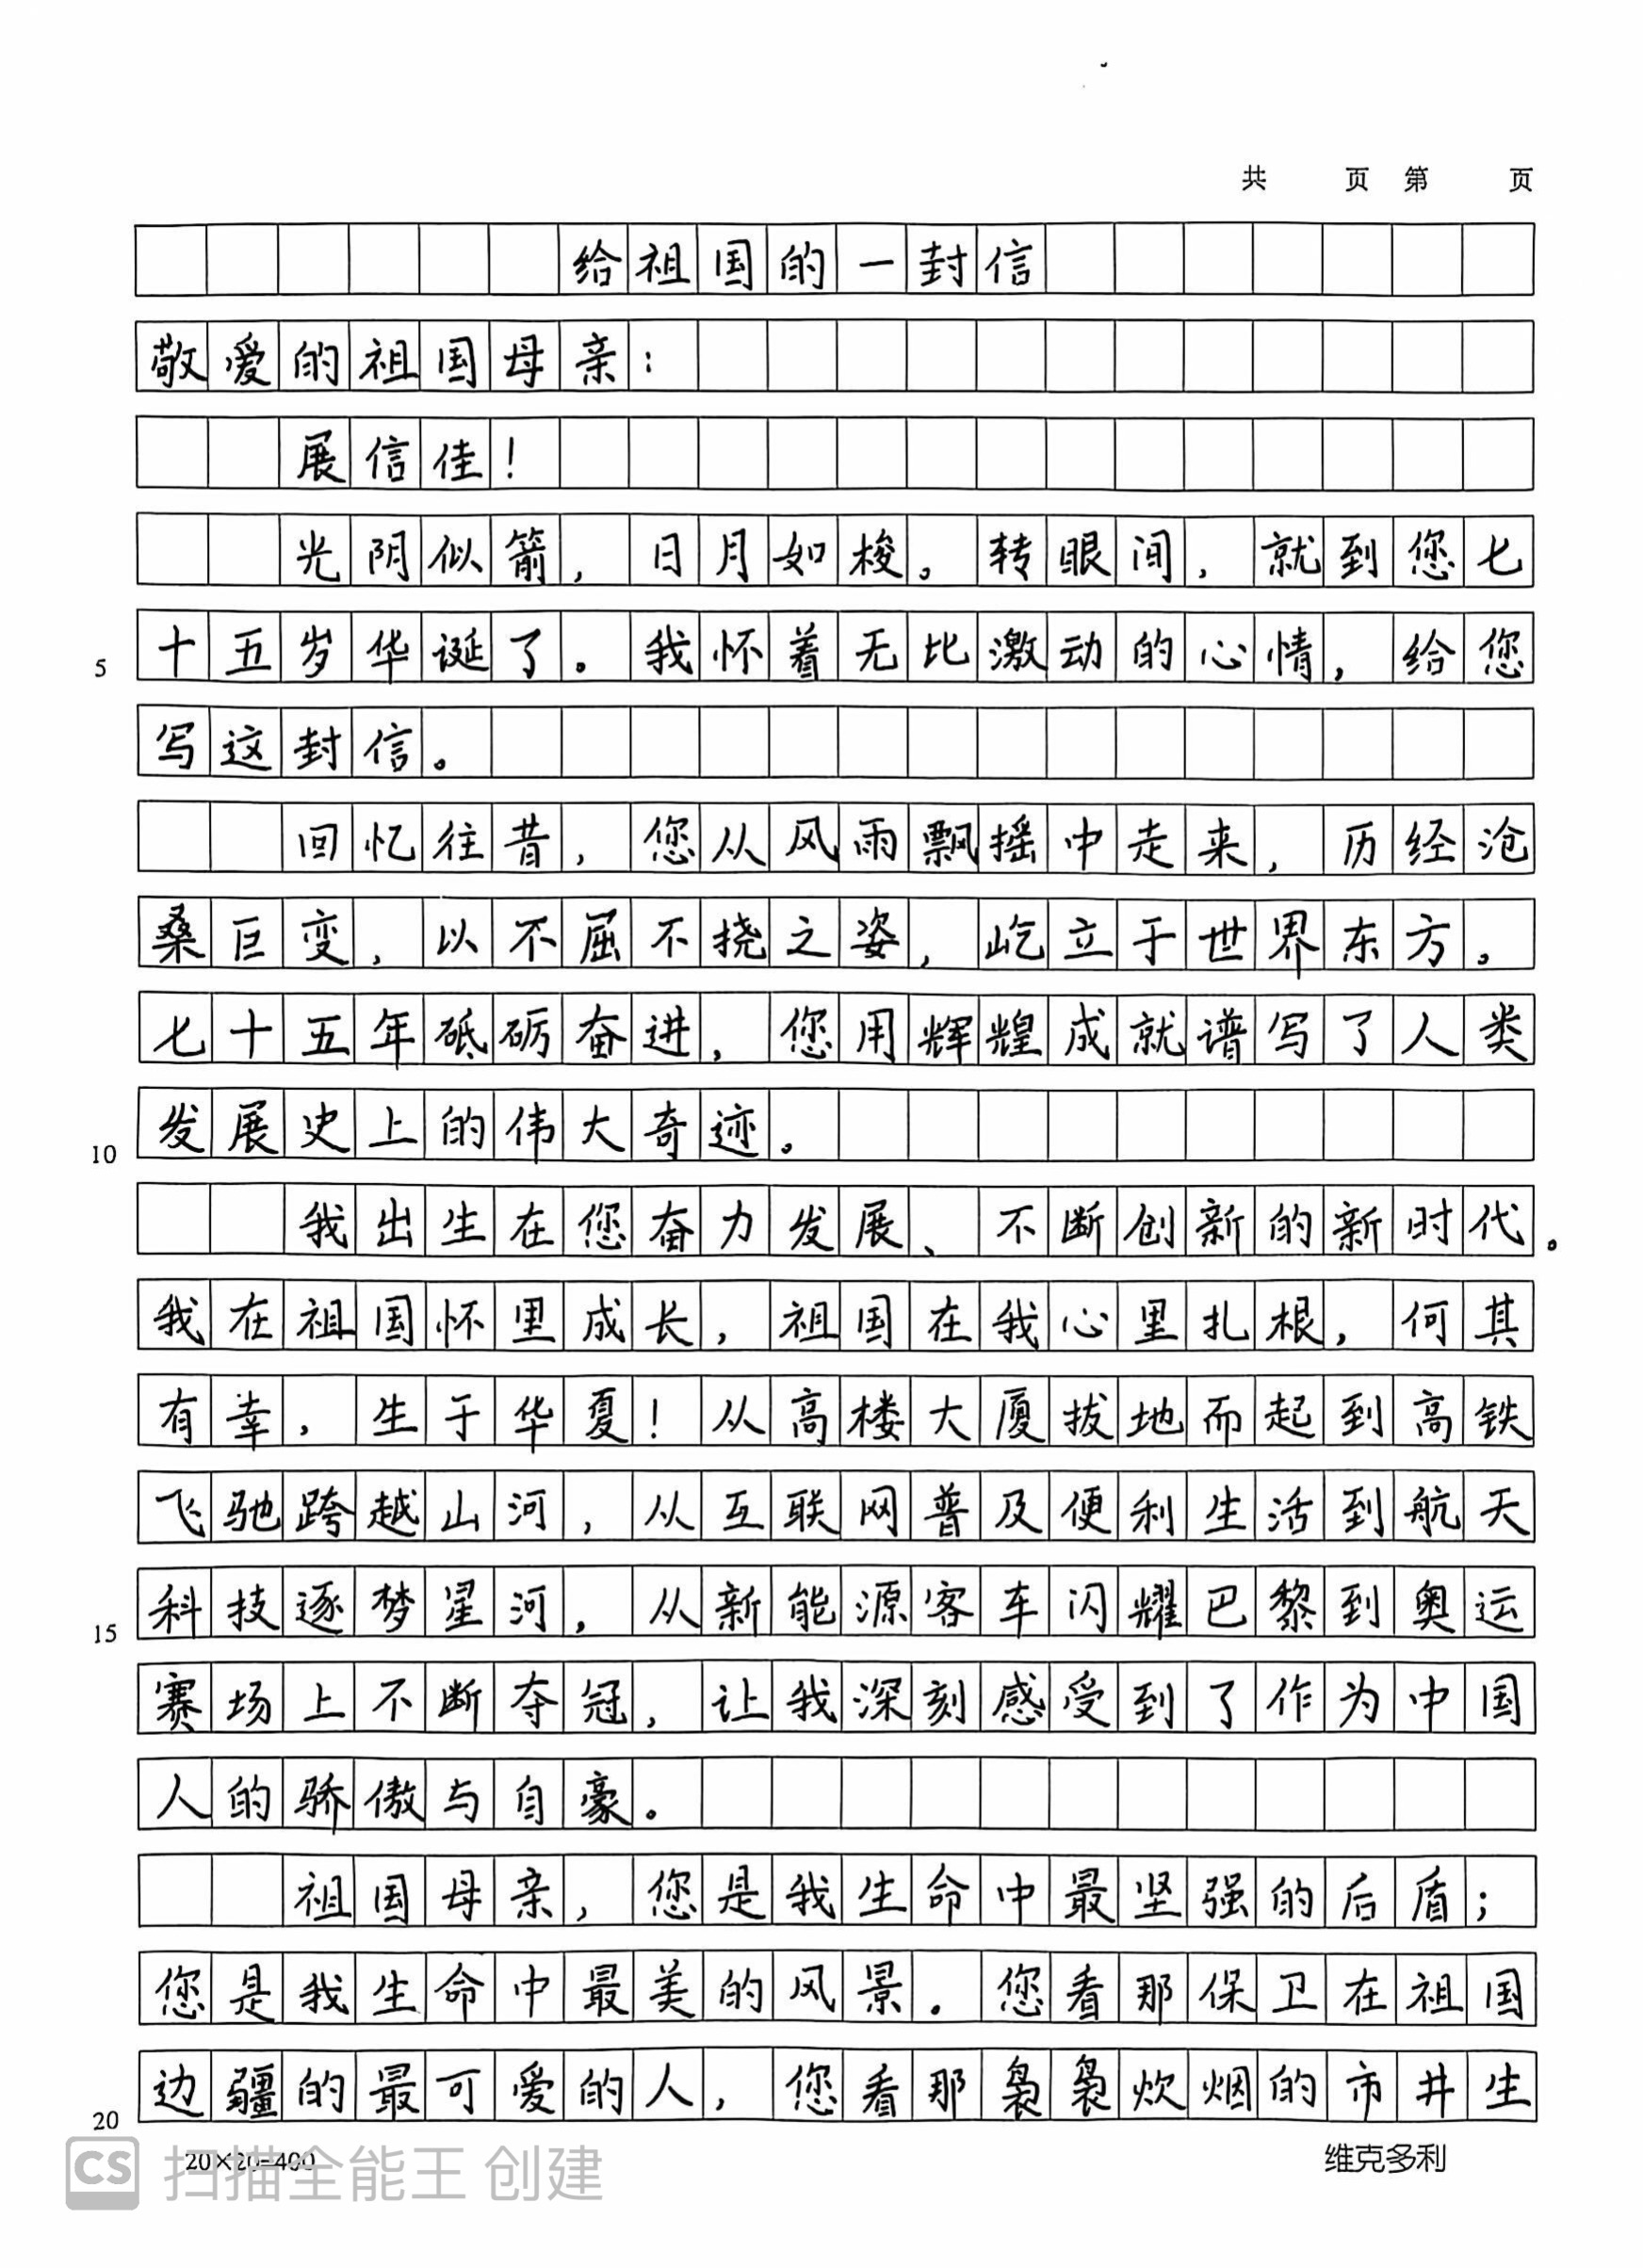 共 页 第 页
给祖国的一封信
敬爱的祖国母亲：
展信佳！
光阴似箭，日月如梭。转眼间，就到您七
5 十五岁华诞了。我怀着无比激动的心情，给您
写这封信。
回忆往昔，您从风雨飘摇中走来，历经沧
桑巨变，以不屈不挠之姿，屹立于世界东方。
七十五年砥砺奋进，您用辉煌成就谱写了人类
10 发展史上的伟大奇迹。
我出生在您奋力发展、不断创新的新时代。
我在祖国怀里成长，祖国在我心里扎根，何其
有幸，生于华夏！从高楼大厦拔地而起到高铁
飞驰跨越山河，从互联网普及便利生活到航天
15 科技逐梦星河，从新能源客车闪耀巴黎到奥运
赛场上不断夺冠，让我深刻感受到了作为中国
人的骄傲与自豪。
祖国母亲，您是我生命中最坚强的后盾；
您是我生命中最美的风景。您看那保卫在祖国
20 边疆的最可爱的人，您看那袅袅炊烟的市井生
20×20=400 维克多利
CS 扫描全能王 创建